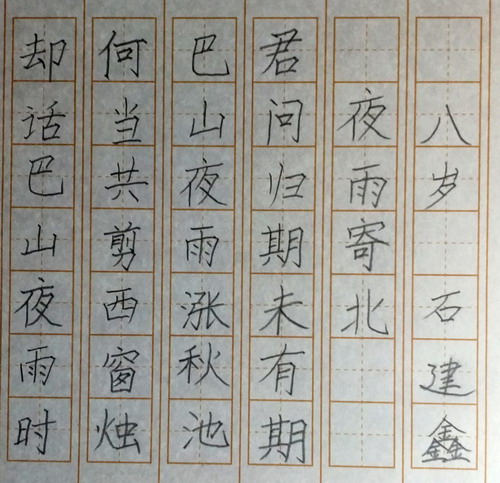 八岁 石建鑫
夜雨寄北
君问归期未有期
巴山夜雨涨秋池
何当共剪西窗烛
却话巴山夜雨时